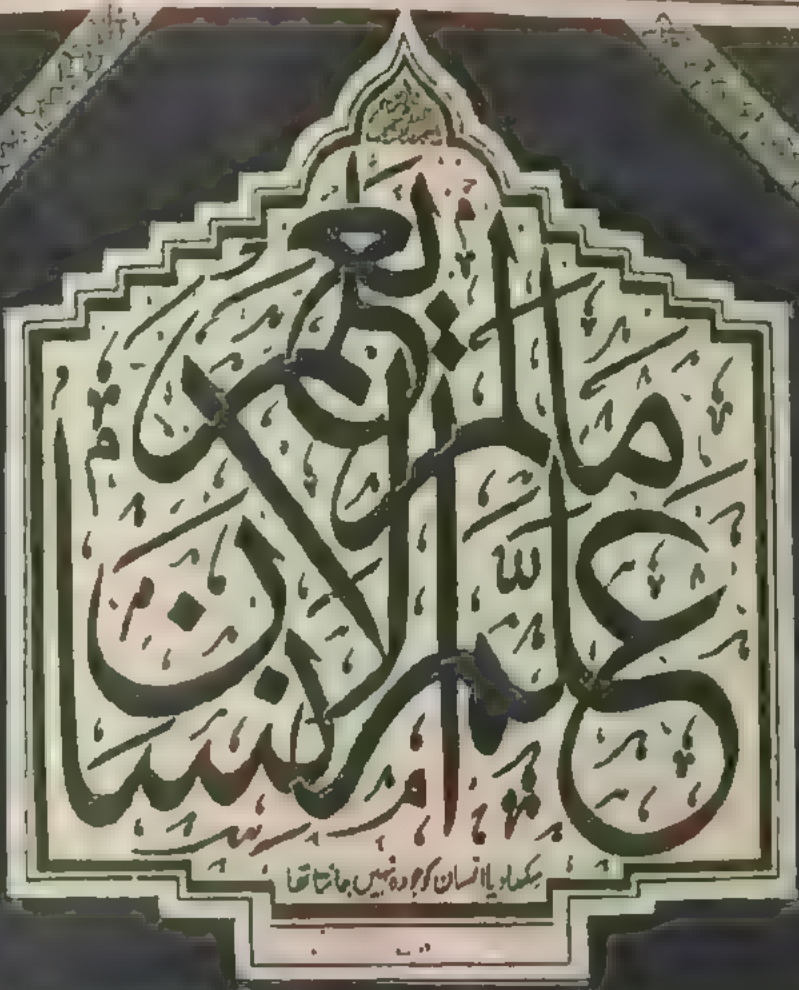 علم الانسان
ما لم يعلم
سکھا دیا انسان کو جو وہ نہیں جانتا تھا